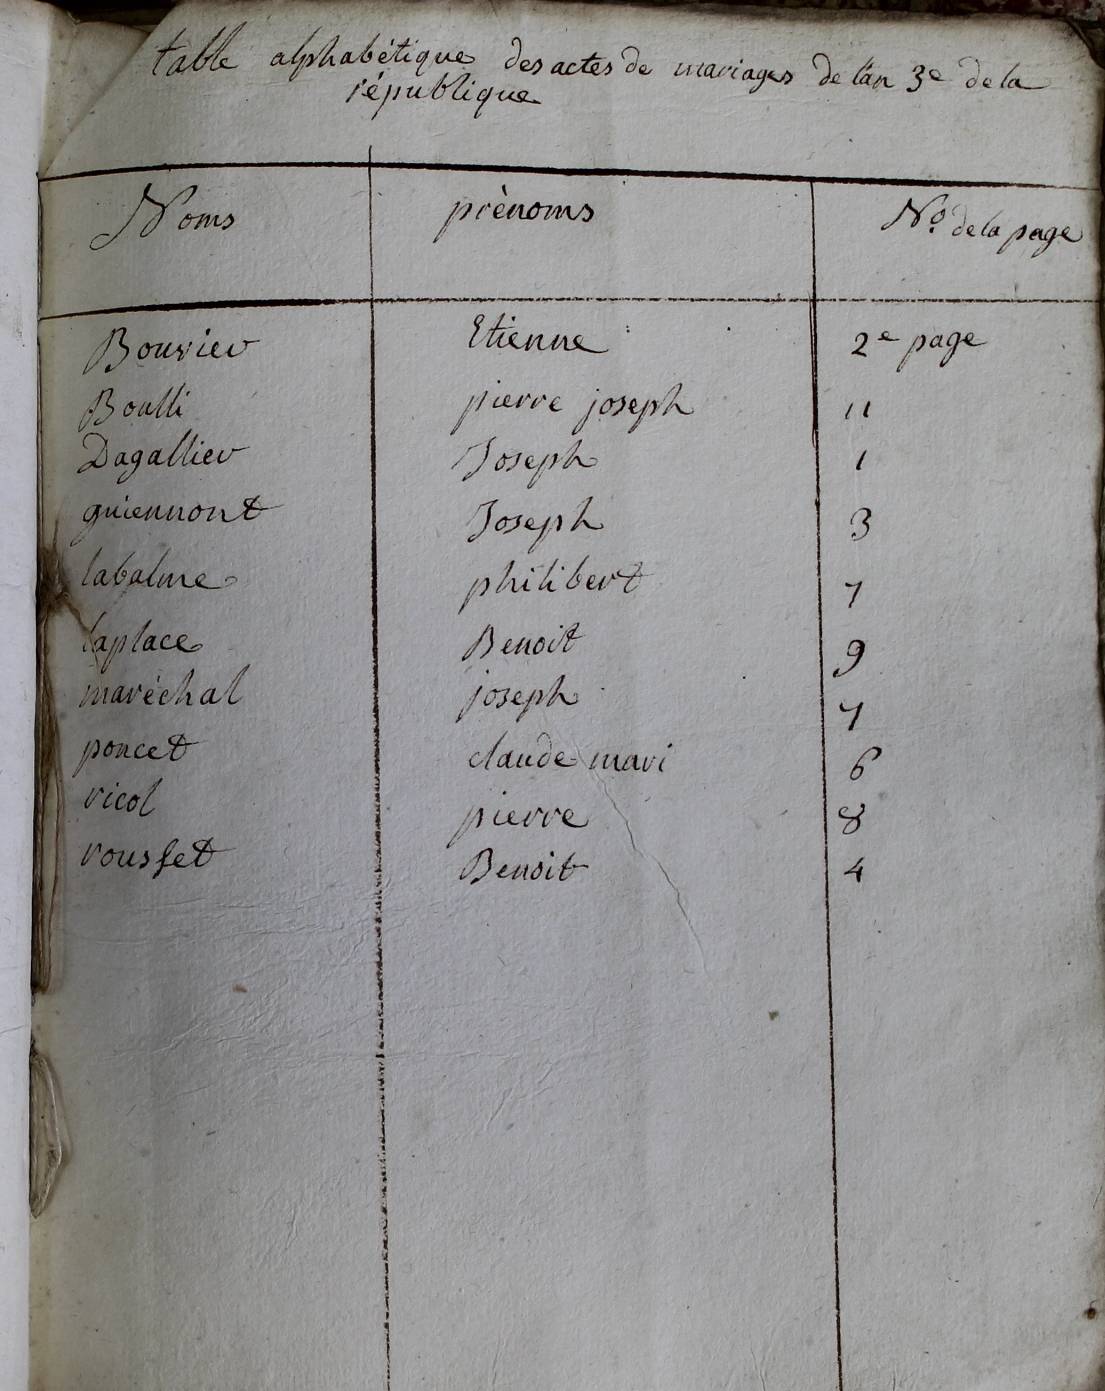 table alphabétique des actes de mariages de l'an 3e de la
république
Noms prènoms No. de la page
Bouvier Etienne 2e page
Boulli pierre joseph 11
Dagallier Joseph 1
guiennont Joseph 3
labalme philibert 7
laplace Benoit 9
maréchal joseph 7
poncet claude mari 6
ricol pierre 8
rousset Benoit 4